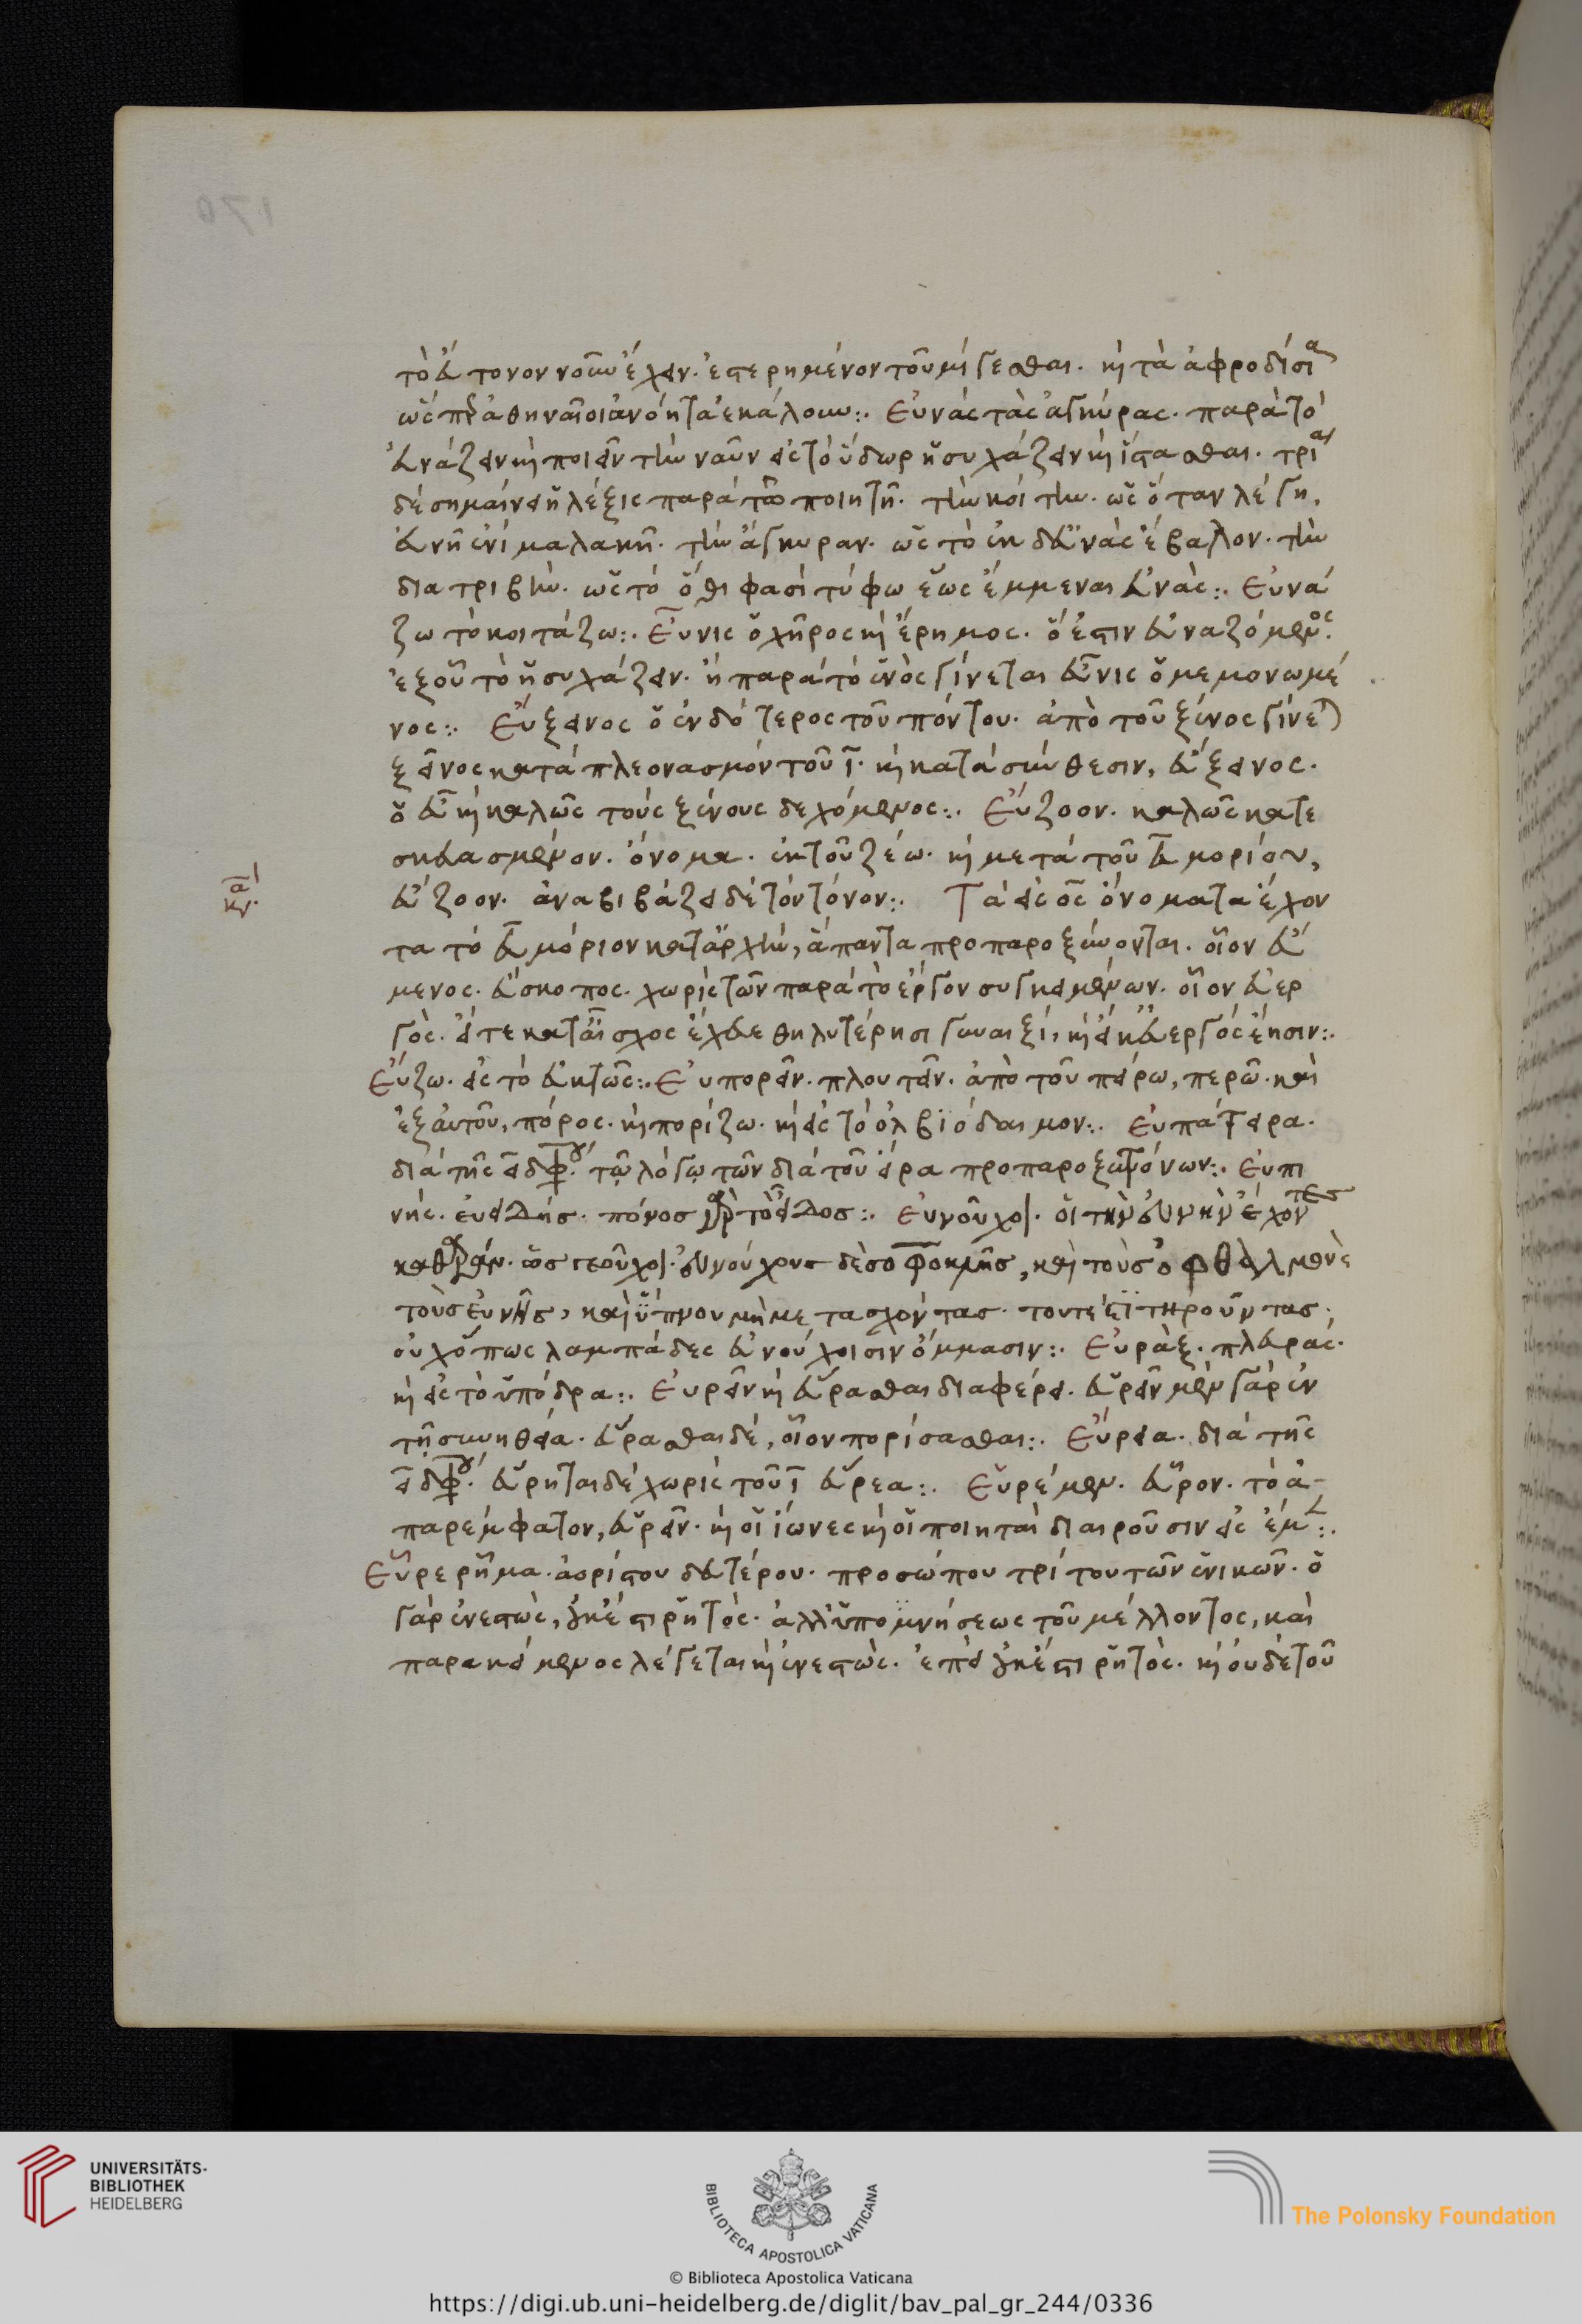 τὸ εὔτονον νοῦν ἔχειν. ἐστερημένον τοῦ μίγεσθαι. καὶ τὰ ἀφροδίσια
ὥσπερ ἀθηναῖοι ἀνόητα ἐκάλουν:. Εὐνάς τὰς ἀγκύρας. παρὰ τὸ
εὐνάζειν καὶ ποιεῖν τὴν ναῦν εἰς τὸ ὕδωρ ἡσυχάζειν καὶ ἵστασθαι. τρία
δὲ σημαίνει ἡ λέξις παρὰ τῶ ποιητῇ. τὴν κοίτην. ὡς ὅταν λέγη,
εὐνῇ ἐνὶ μαλακῇ. τὴν ἄγκυραν. ὡς τὸ ἐκ δ' εὐνὰς ἔβαλον. τὴν
διατριβὴν. ὡς τό ὅθι φασὶ τύφωέως ἔμμεναι εὐνὰς:. Εὐνά
ζω τὸ κοιτάζω:. Εὖνις ὁ χῆρος καὶ ἔρημος. ὅ ἐστιν εὐναζόμενος.
ἐξ οὗ τὸ ἡσυχάζειν. ἢ παρὰ τὸ ἑνὸς γίνεται εὖνις ὁ μεμονωμέ
νος:. Εὔξεινος ὁ ἐνδότερος τοῦ πόντου. ἀπὸ τοῦ ξένος γίνεται
ξεῖνος κατὰ πλεονασμὸν τοῦ ι. καὶ κατὰ σύνθεσιν, εὔξεινος.
ὁ εὖ καὶ καλῶς τοὺς ξένους δεχόμενος:. Εὔζοον. καλῶς κατε
σκευασμένον. ὄνομα. ἐκ τοῦ ζέω. καὶ μετὰ τοῦ εὖ μορίου,
εὔζοον. ἀναβιβάζει δὲ τὸν τόνον:. Τὰ εἰς ος ὀνόματα ἔχον
τα τὸ εὖ μόριον κατ' ἀρχὴν, ἅπαντα προπαροξύνονται. οἷον εὔ
μενος. εὔσκοπος. χωρὶς τῶν παρὰ τὸ ἔργον συγκειμένων. οἷον εὐερ
γὸς. ἅτε κατ' αἶσχος ἔχευε θηλυτέρησι γυναιξί, καὶ εἴ κ' εὐεργὸς ἔησιν:.
Εὔζω. εἰς τὸ εὐκτῶς:. Εὐπορεῖν. πλουτεῖν. ἀπὸ τοῦ πείρω, περῶ. καὶ
ἐξ αὐτοῦ, πόρος. καὶ πορίζω. καὶ εἰς τὸ ὀλβιόδαιμον:. Εὐπάτειρα.
διὰ τῆς ει διφθόγγου. τῷ λόγῳ τῶν διὰ τοῦ ειρα προπαροξυτόνων:. Εὐπι
νής. εὐειδής. πόνος παρὰ τὸ εἶδος:. Εὐνοῦχοι. οἱ τὴν εὐνὴν ἔχοντες
καθαρὰν. εὐνούχους δὲ σοφοκλῆς, καὶ τοὺς ὀφθαλμοὺς
τοὺς εὐνῆς, καὶ ὕπνου μὴ μετασχόντας. τουτέστι τηροῦντας.
οὐχ ὅπως λαμπάδες εὐνούχοισιν ὄμμασιν:. Εὐράξ. πλευράς.
καὶ εἰς τὸ ὑπόδρα:. Εὑρεῖν καὶ εὕρασθαι διαφέρει. εὑρεῖν μὲν γὰρ ἐν
τῇ συνηθεία. εὕρασθαι δέ, οἷον πορίσασθαι:. Εὕρεια. διὰ τῆς
ει διφθόγγου. εὕρηται δὲ χωρὶς τοῦ ι εὕρεα:. Εὑρέμεν. εὗρον. τὸ ἀ-
παρέμφατον, εὑρεῖν. καὶ οἱ ἴωνες καὶ οἱ ποιηταὶ διαιροῦσιν εἰς έμεν:.
Εὗρε ῥῆμα. ἀορίστου δευτέρου. προσώπου τρίτου τῶν ἑνικῶν. ὁ
γὰρ ἐνεστὼς, οὐκ ἔστι ῥητὸς. ἀλλ' ὑπομνήσεως τοῦ μέλλοντος, καὶ
παρακείμενος λέγεται καὶ ἐνεστὼς. ἐπεὶ οὐκ ἔστι ῥητὸς. καὶ οὐδὲ τοῦ
UNIVERSITÄTS-
BIBLIOTHEK
HEIDELBERG
BIBLIOTECA APOSTOLICA VATICANA
The Polonsky Foundation
© Biblioteca Apostolica Vaticana
https://digi.ub.uni-heidelberg.de/diglit/bav_pal_gr_244/0336